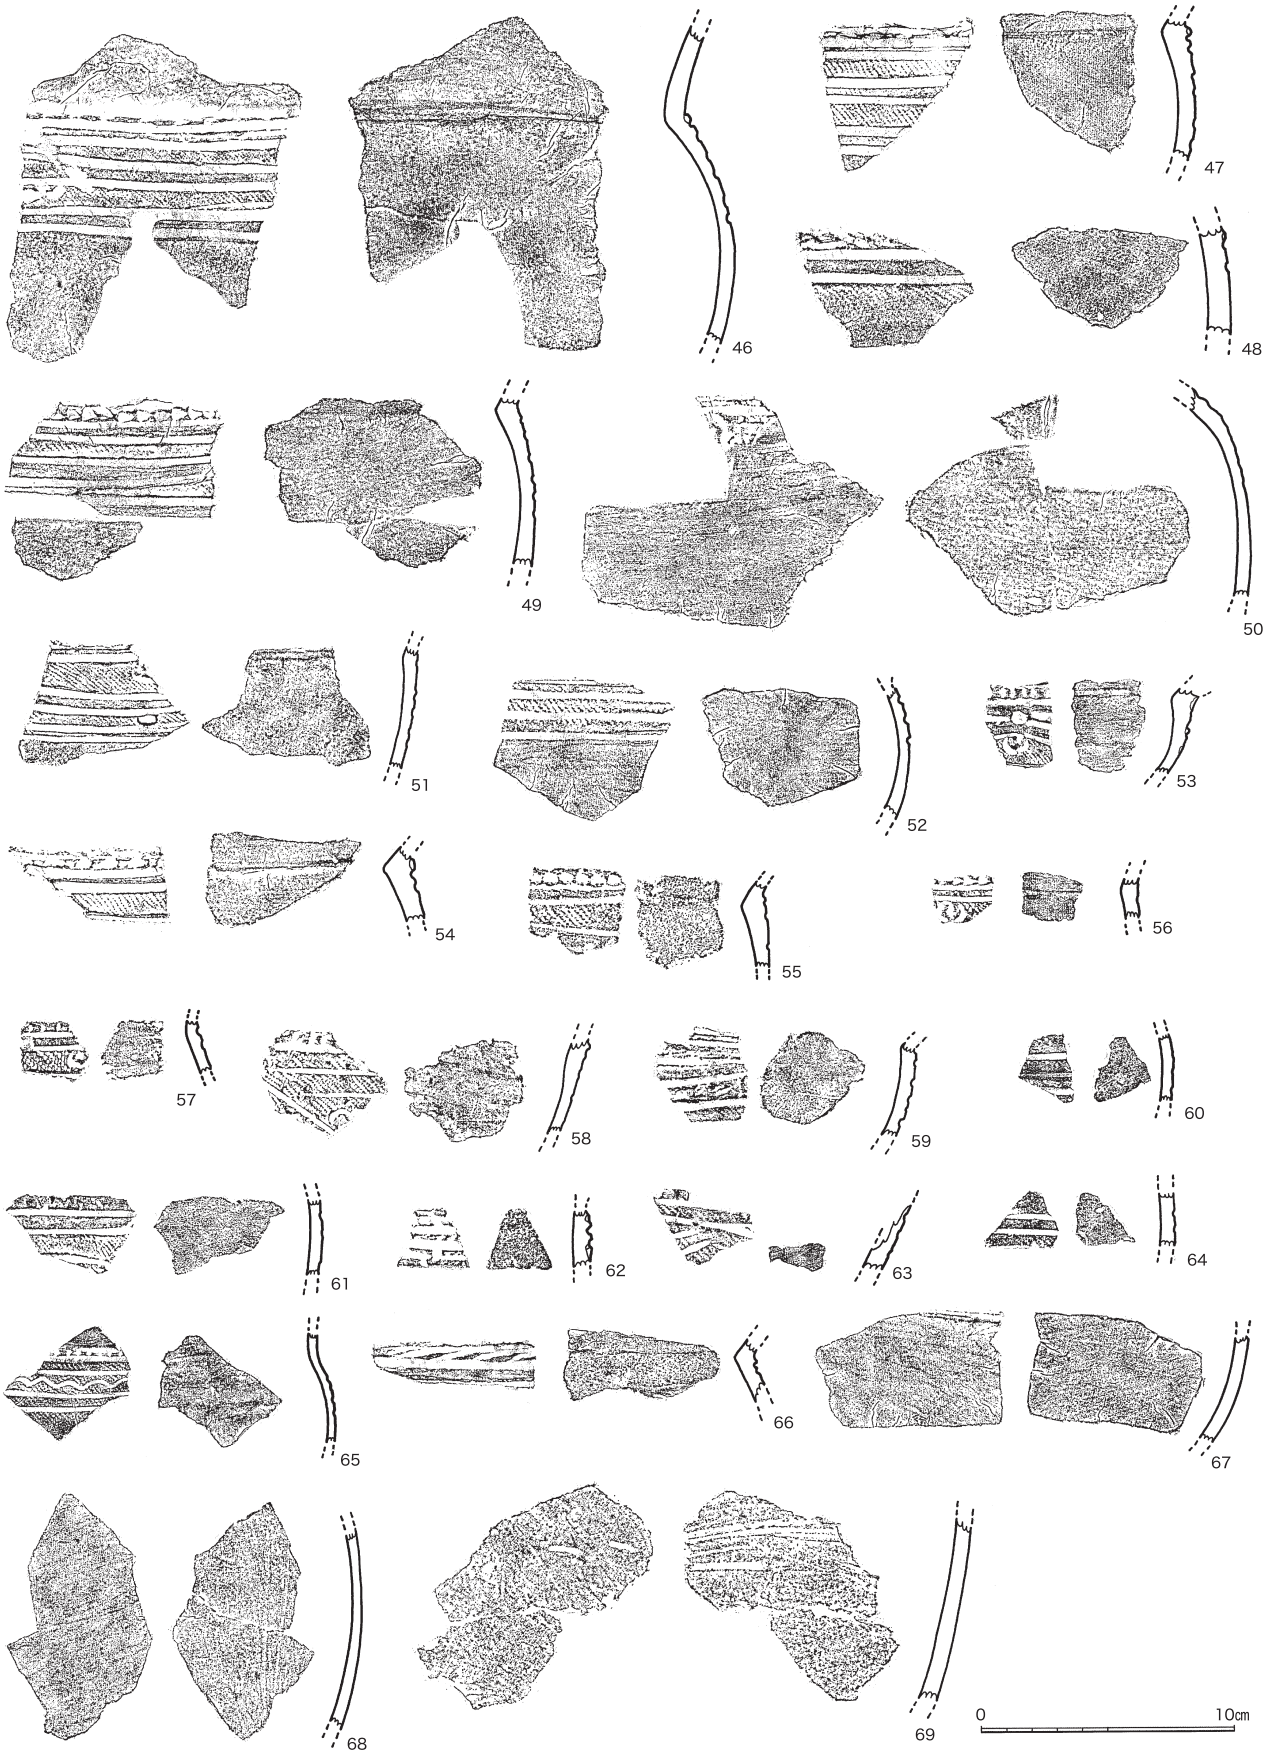 47
46
48
49
50
51
52
53
54
55
56
57
58
59
60
61
62
63
64
65
66
67
68
69
0 10cm